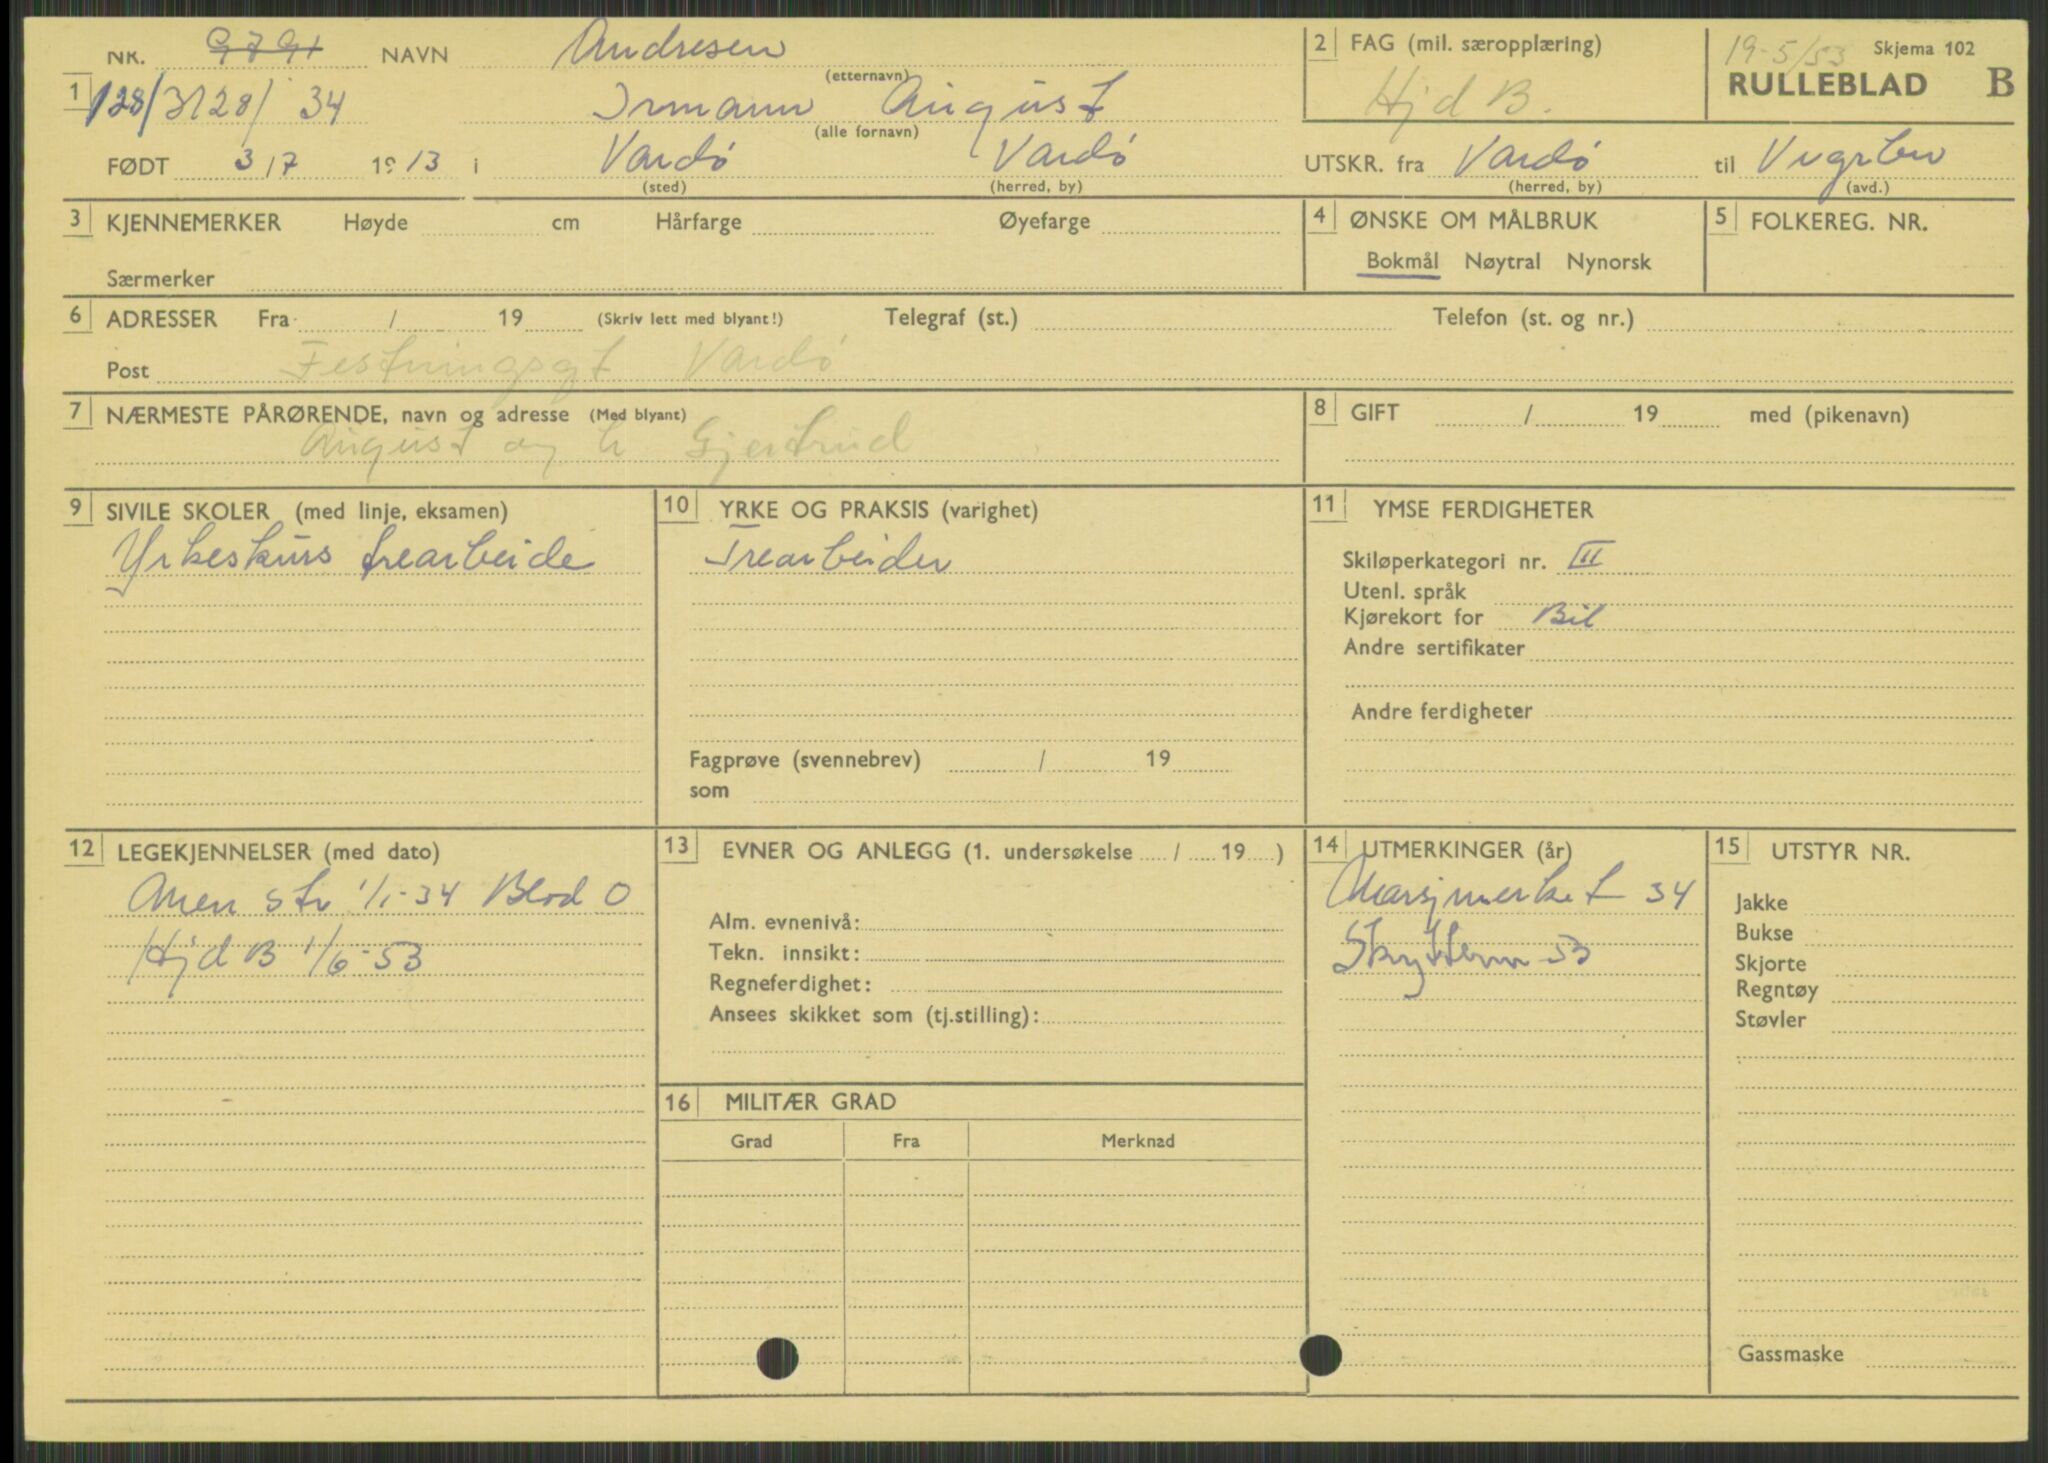 NR. 9791 NAVN Andresen
(etternavn)
1 128/3128/34 Irmann August
(alle fornavn)
FØDT 3/7 1913 i Vardö Vardö
(sted) (herred, by)
2 FAG (mil. særopplæring)
Hjd B.
19-5/53 Skjema 102
RULLEBLAD B
UTSKR. fra Vardö til
(herred, by) (avd.)
3 KJENNEMERKER Høyde cm Hårfarge Øyefarge
Særmerker
4 ØNSKE OM MÅLBRUK
Bokmål Nøytral Nynorsk
5 FOLKEREG. NR.
6 ADRESSER Fra / 19 (Skriv lett med blyant!) Telegraf (st.) Telefon (st. og nr.)
Post Festningsgt Vardö
7 NÆRMESTE PÅRØRENDE, navn og adresse (Med blyant)
August og h Gjertrud
8 GIFT / 19 med (pikenavn)
9 SIVILE SKOLER (med linje, eksamen)
Yrkeskurs trearbeide
10 YRKE OG PRAKSIS (varighet)
Trearbeider
Fagprøve (svennebrev) / 19
som
11 YMSE FERDIGHETER
Skiløperkategori nr. III
Utenl. språk
Kjørekort for Bil
Andre sertifikater
Andre ferdigheter
12 LEGEKJENNELSER (med dato)
str 1/1-34 Blod O
Hjd B 1/6-53
13 EVNER OG ANLEGG (1. undersøkelse / 19 )
Alm. evnenivå:
Tekn. innsikt:
Regneferdighet:
Ansees skikket som (tj.stilling):
14 UTMERKINGER (år)
Marsjmerket 34
53
15 UTSTYR NR.
Jakke
Bukse
Skjorte
Regntøy
Støvler
Gassmaske
16 MILITÆR GRAD
Grad Fra Merknad